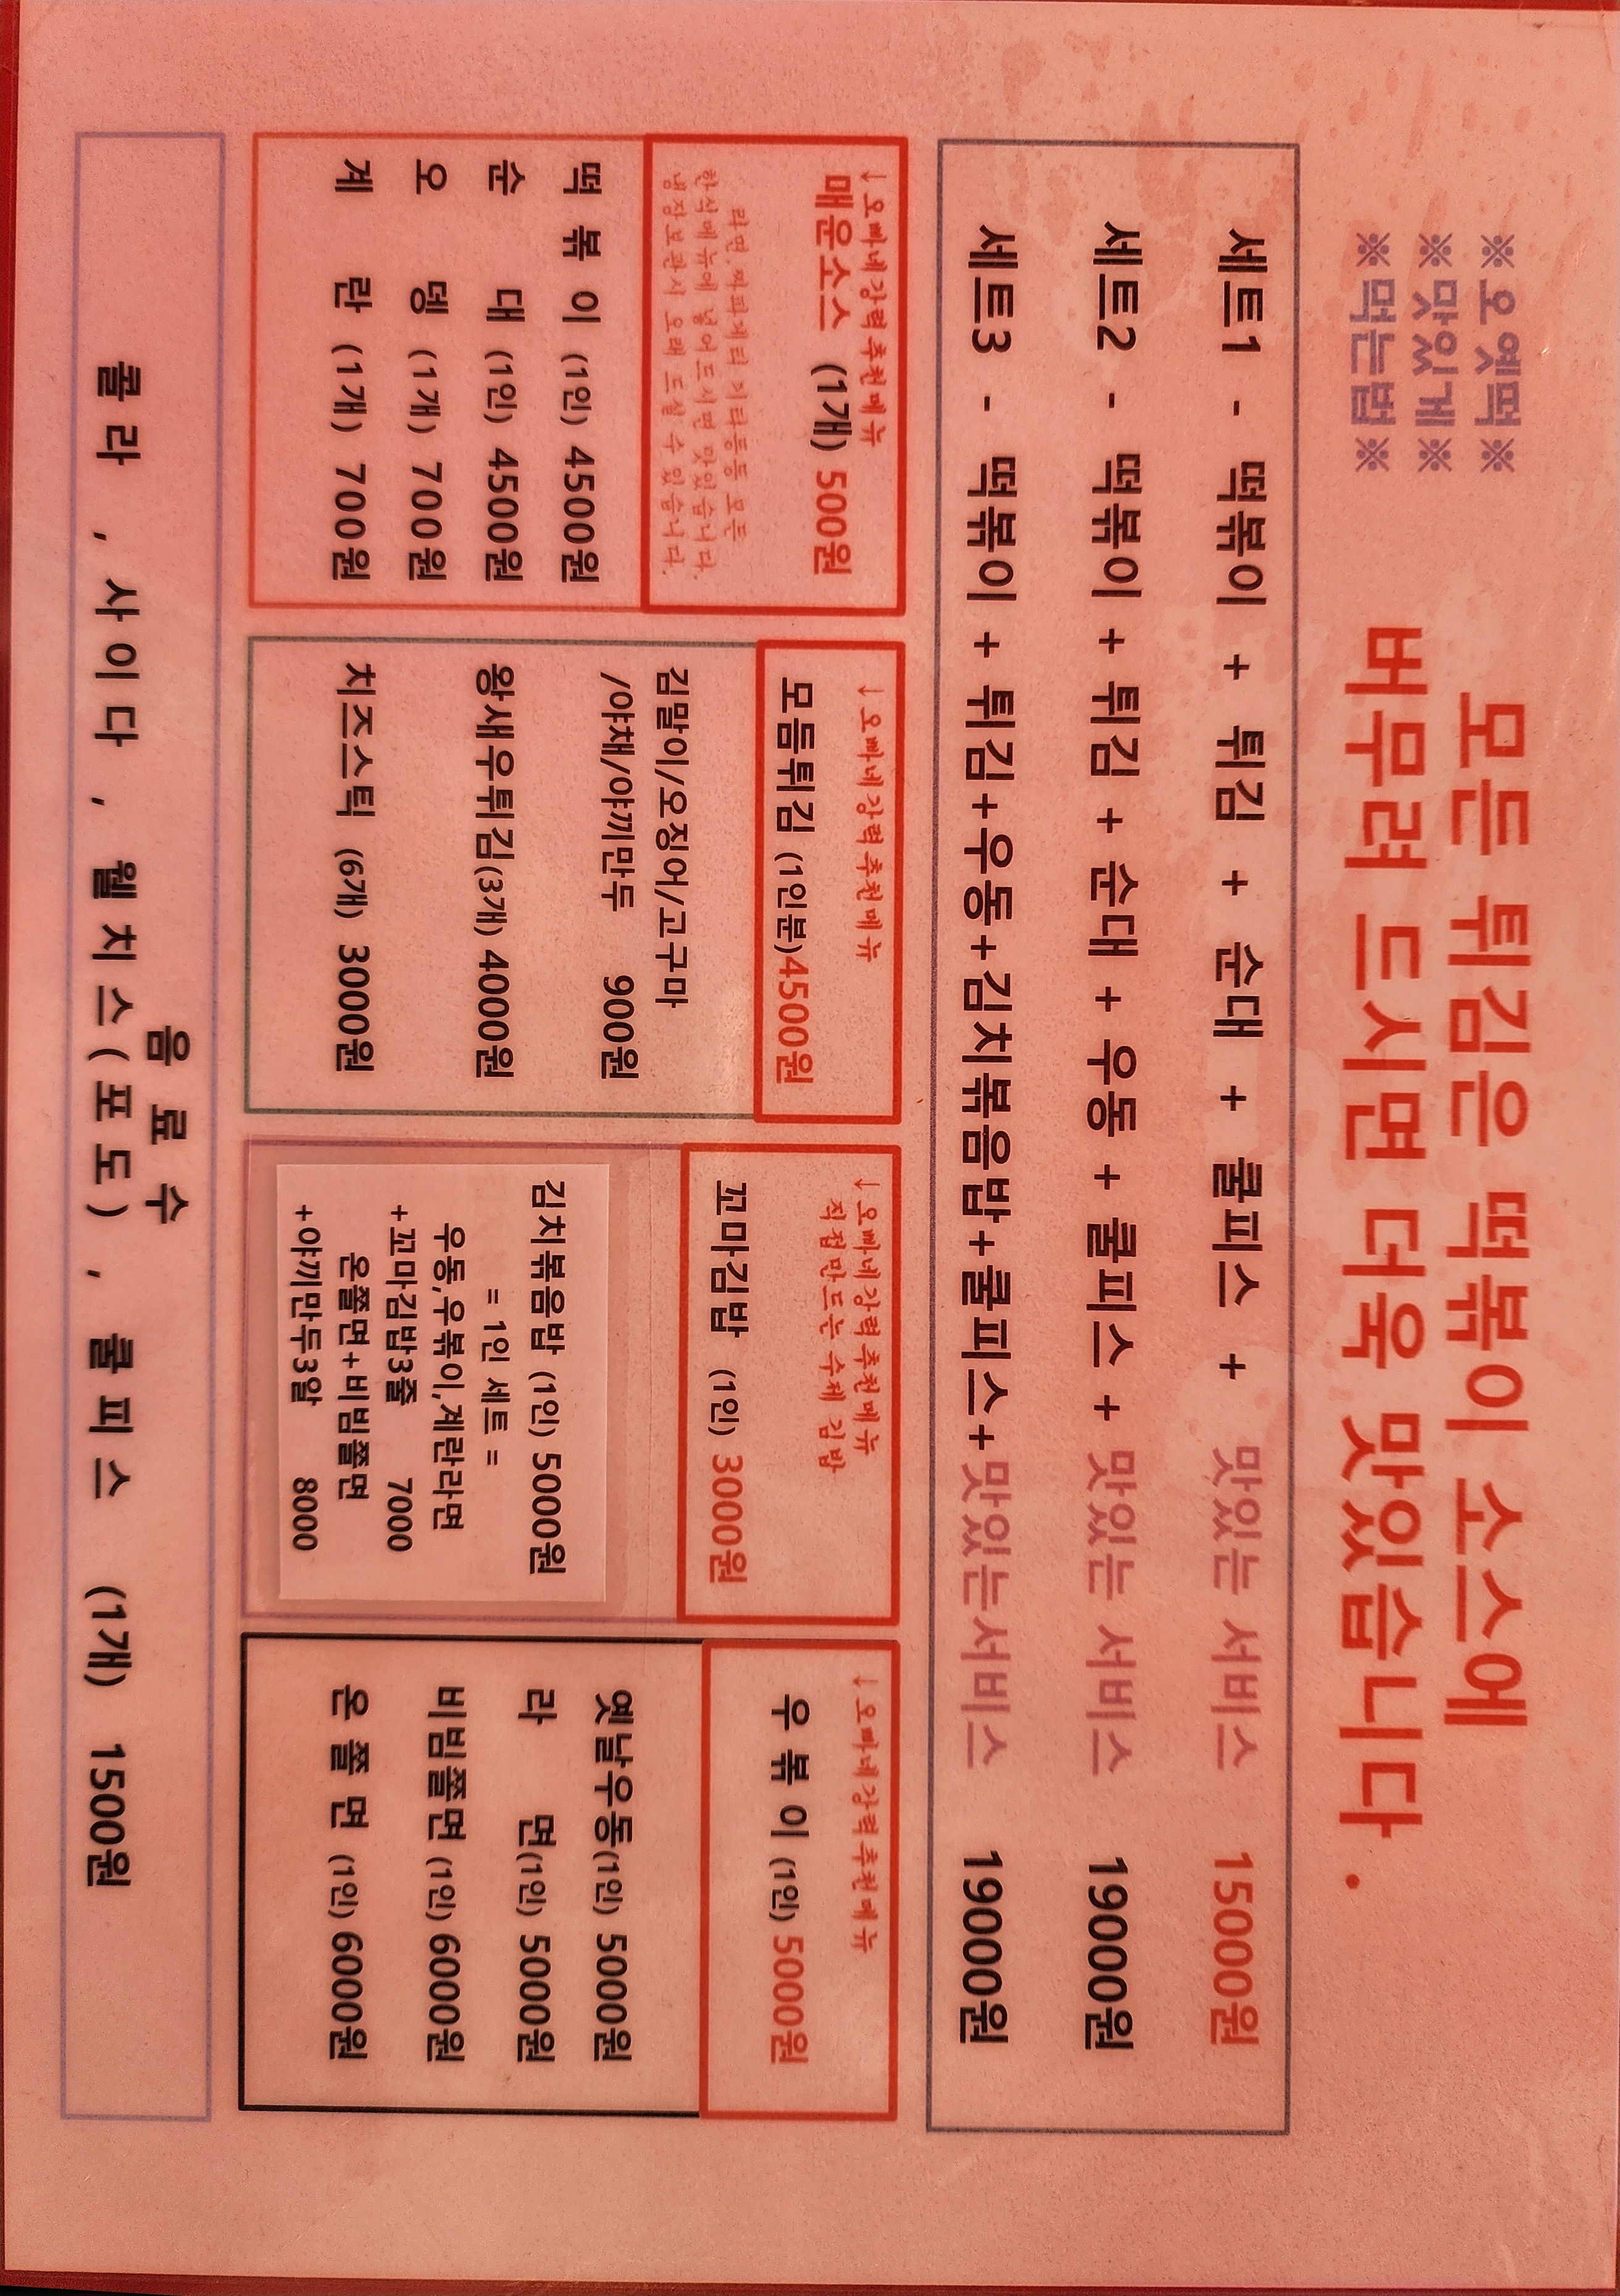 ※오옛떡※
※맛있게※
※먹는법※
모든 튀김은 떡볶이 소스에
버무려 드시면 더욱 맛있습니다.
세트1 - 떡볶이 + 튀김 + 순대 + 쿨피스 + 맛있는 서비스 15000원
세트2 - 떡볶이 + 튀김 + 순대 + 우동 + 쿨피스 + 맛있는 서비스 19000원
세트3 - 떡볶이 + 튀김+우동+김치볶음밥+쿨피스+맛있는서비스 19000원
↓오빠네강력추천메뉴
매운소스 (1개) 500원
라면,짜파게티 기타등등 모든
한식메뉴에 넣어드시면 맛있습니다.
냉장보관시 오래 드실 수 있습니다.
떡 볶 이 (1인) 4500원
순 대 (1인) 4500원
오 뎅 (1개) 700원
계 란 (1개) 700원
↓오빠네강력추천메뉴
모듬튀김 (1인분)4500원
김말이/오징어/고구마
/야채/야끼만두 900원
왕새우튀김(3개) 4000원
치즈스틱 (6개) 3000원
↓오빠네강력추천메뉴
직접만드는 수제 김밥
꼬마김밥 (1인) 3000원
김치볶음밥 (1인) 5000원
= 1인 세트 =
우동,우볶이,계란라면
+꼬마김밥3줄 7000
온쫄면+비빔쫄면
+야끼만두3알 8000
↓오빠네강력추천메뉴
우 볶 이 (1인) 5000원
옛날우동(1인) 5000원
라 면(1인) 5000원
비빔쫄면 (1인) 6000원
온 쫄 면 (1인) 6000원
음 료 수
콜라 , 사이다 , 웰치스(포도) , 쿨피스 (1개) 1500원